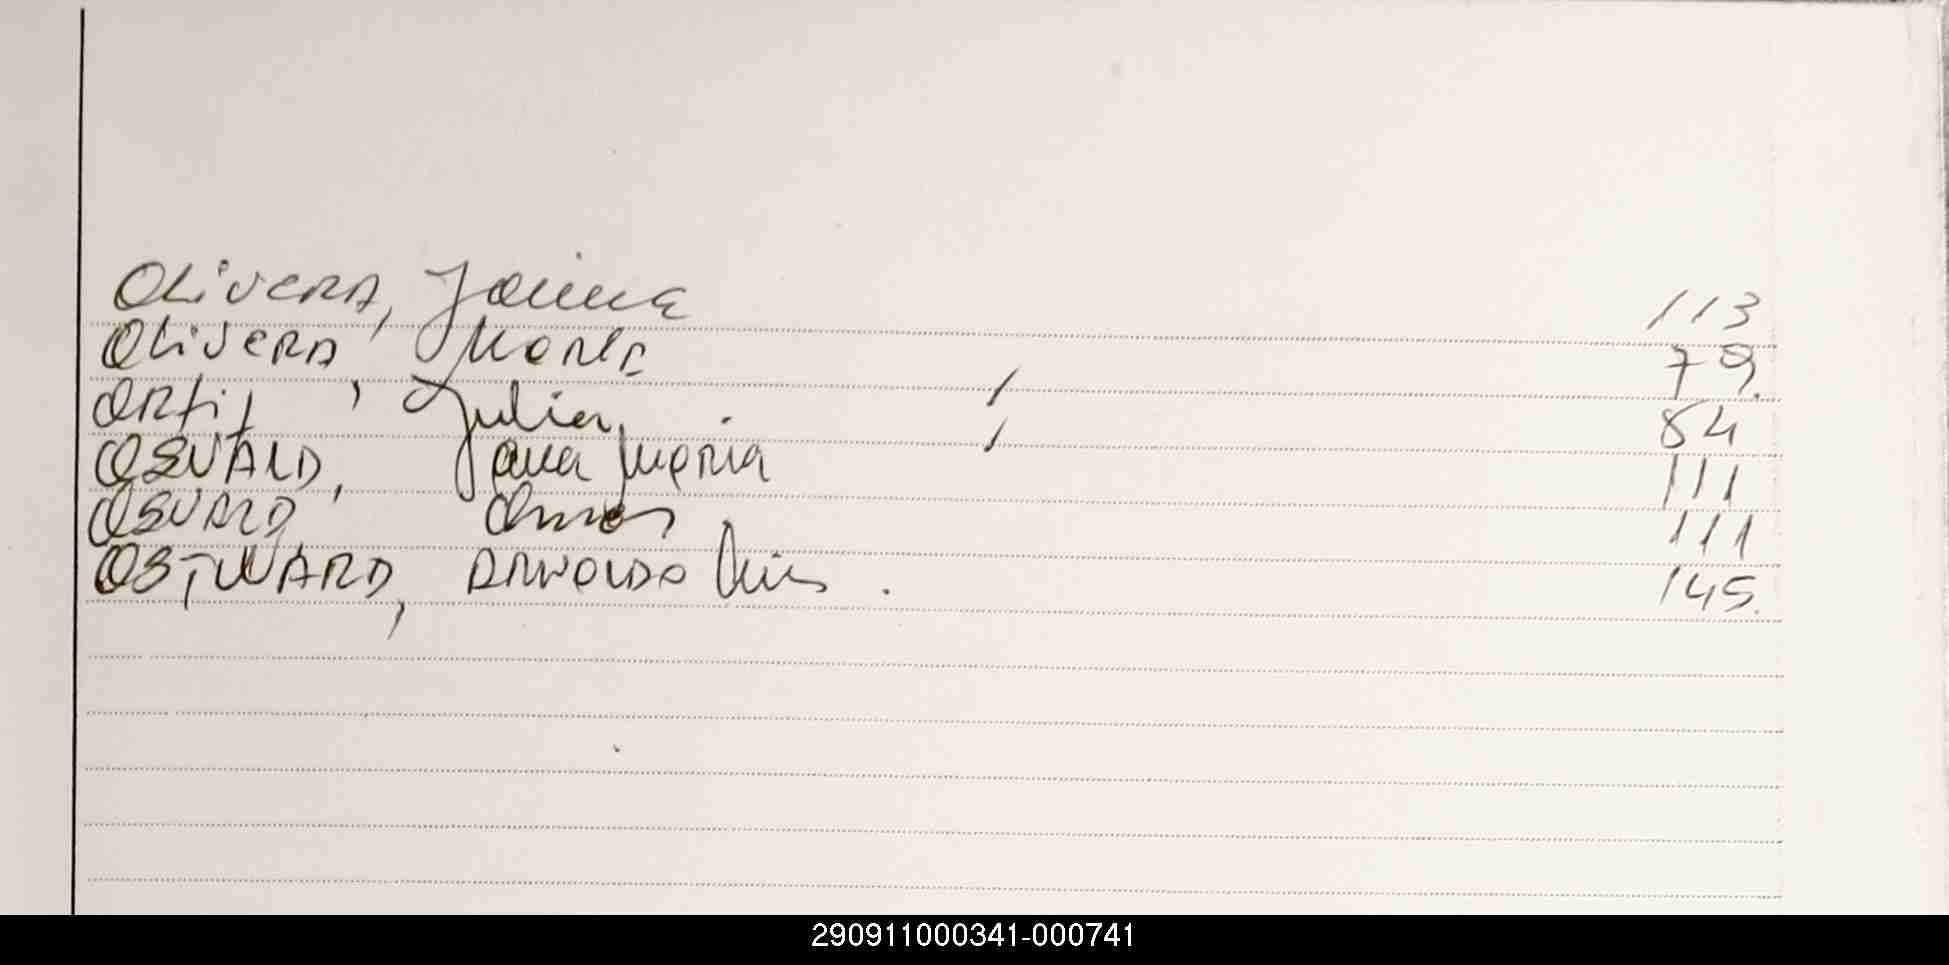 OLIVERA, Jaime 113
OLIVERA, Maria 79.
ORtiz, Julia 84
OSVALD, Jana Maria 111
OSVALD 111
OSTWARD, ARNOLDO Luis. 145.
290911000341-000741